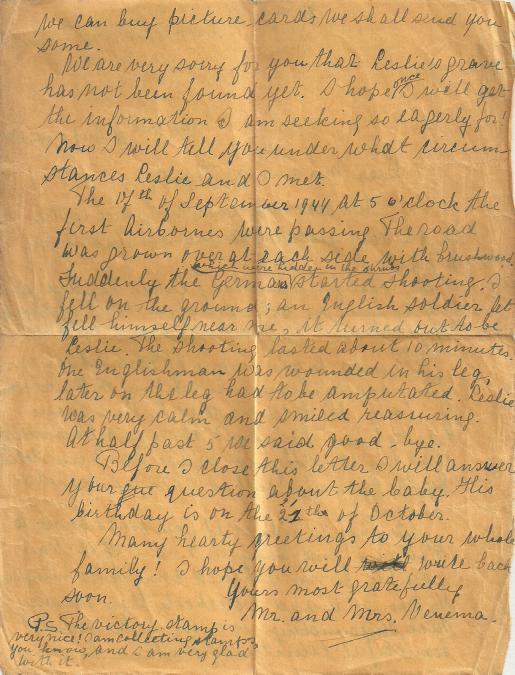 we can buy picture-cards we shall send you
some.
We are very sorry for you that Leslie's grave
has not been found yet. I hope once I will get
the information I am seeking so eagerly for!
Now I will tell you under what circum-
stances Leslie and I met.
The 17th of September 1944 at 5 o'clock the
first Airbornes were passing. The road
was grown over at each side with brushwood.
Suddenly the Germans which were hidden in the shrubs started shooting. I
fell on the ground; an English soldier let
fell himself near me, it turned out to be
Leslie. The shooting lasted about 10 minutes.
One Englishman was wounded in his leg,
later on the leg had to be amputated. Leslie
was very calm and smiled reassuring.
At half past 5 we said good-bye.
Before I close this letter I will answer
your question about the baby. His
birthday is on the 21th of October.
Many hearty greetings to your whole
family! I hope you will write back
soon.
Yours most gratefully
Mr. and Mrs. Venema.
PS The victory stamp is
very nice! I am collecting stamps,
you know, and I am very glad
with it.